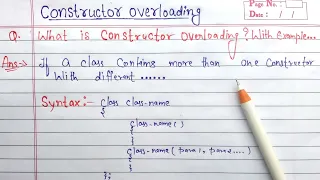 Constructor overloading
Page No.
Date : / /
Q. What is Constructor Overloading? With Example...
Ans:→ If A class Contains more than one Constructor
With different ......
Syntax:- class class-name
{
class-name( )
{
}
class-name( para1, para2....)
{
}
};